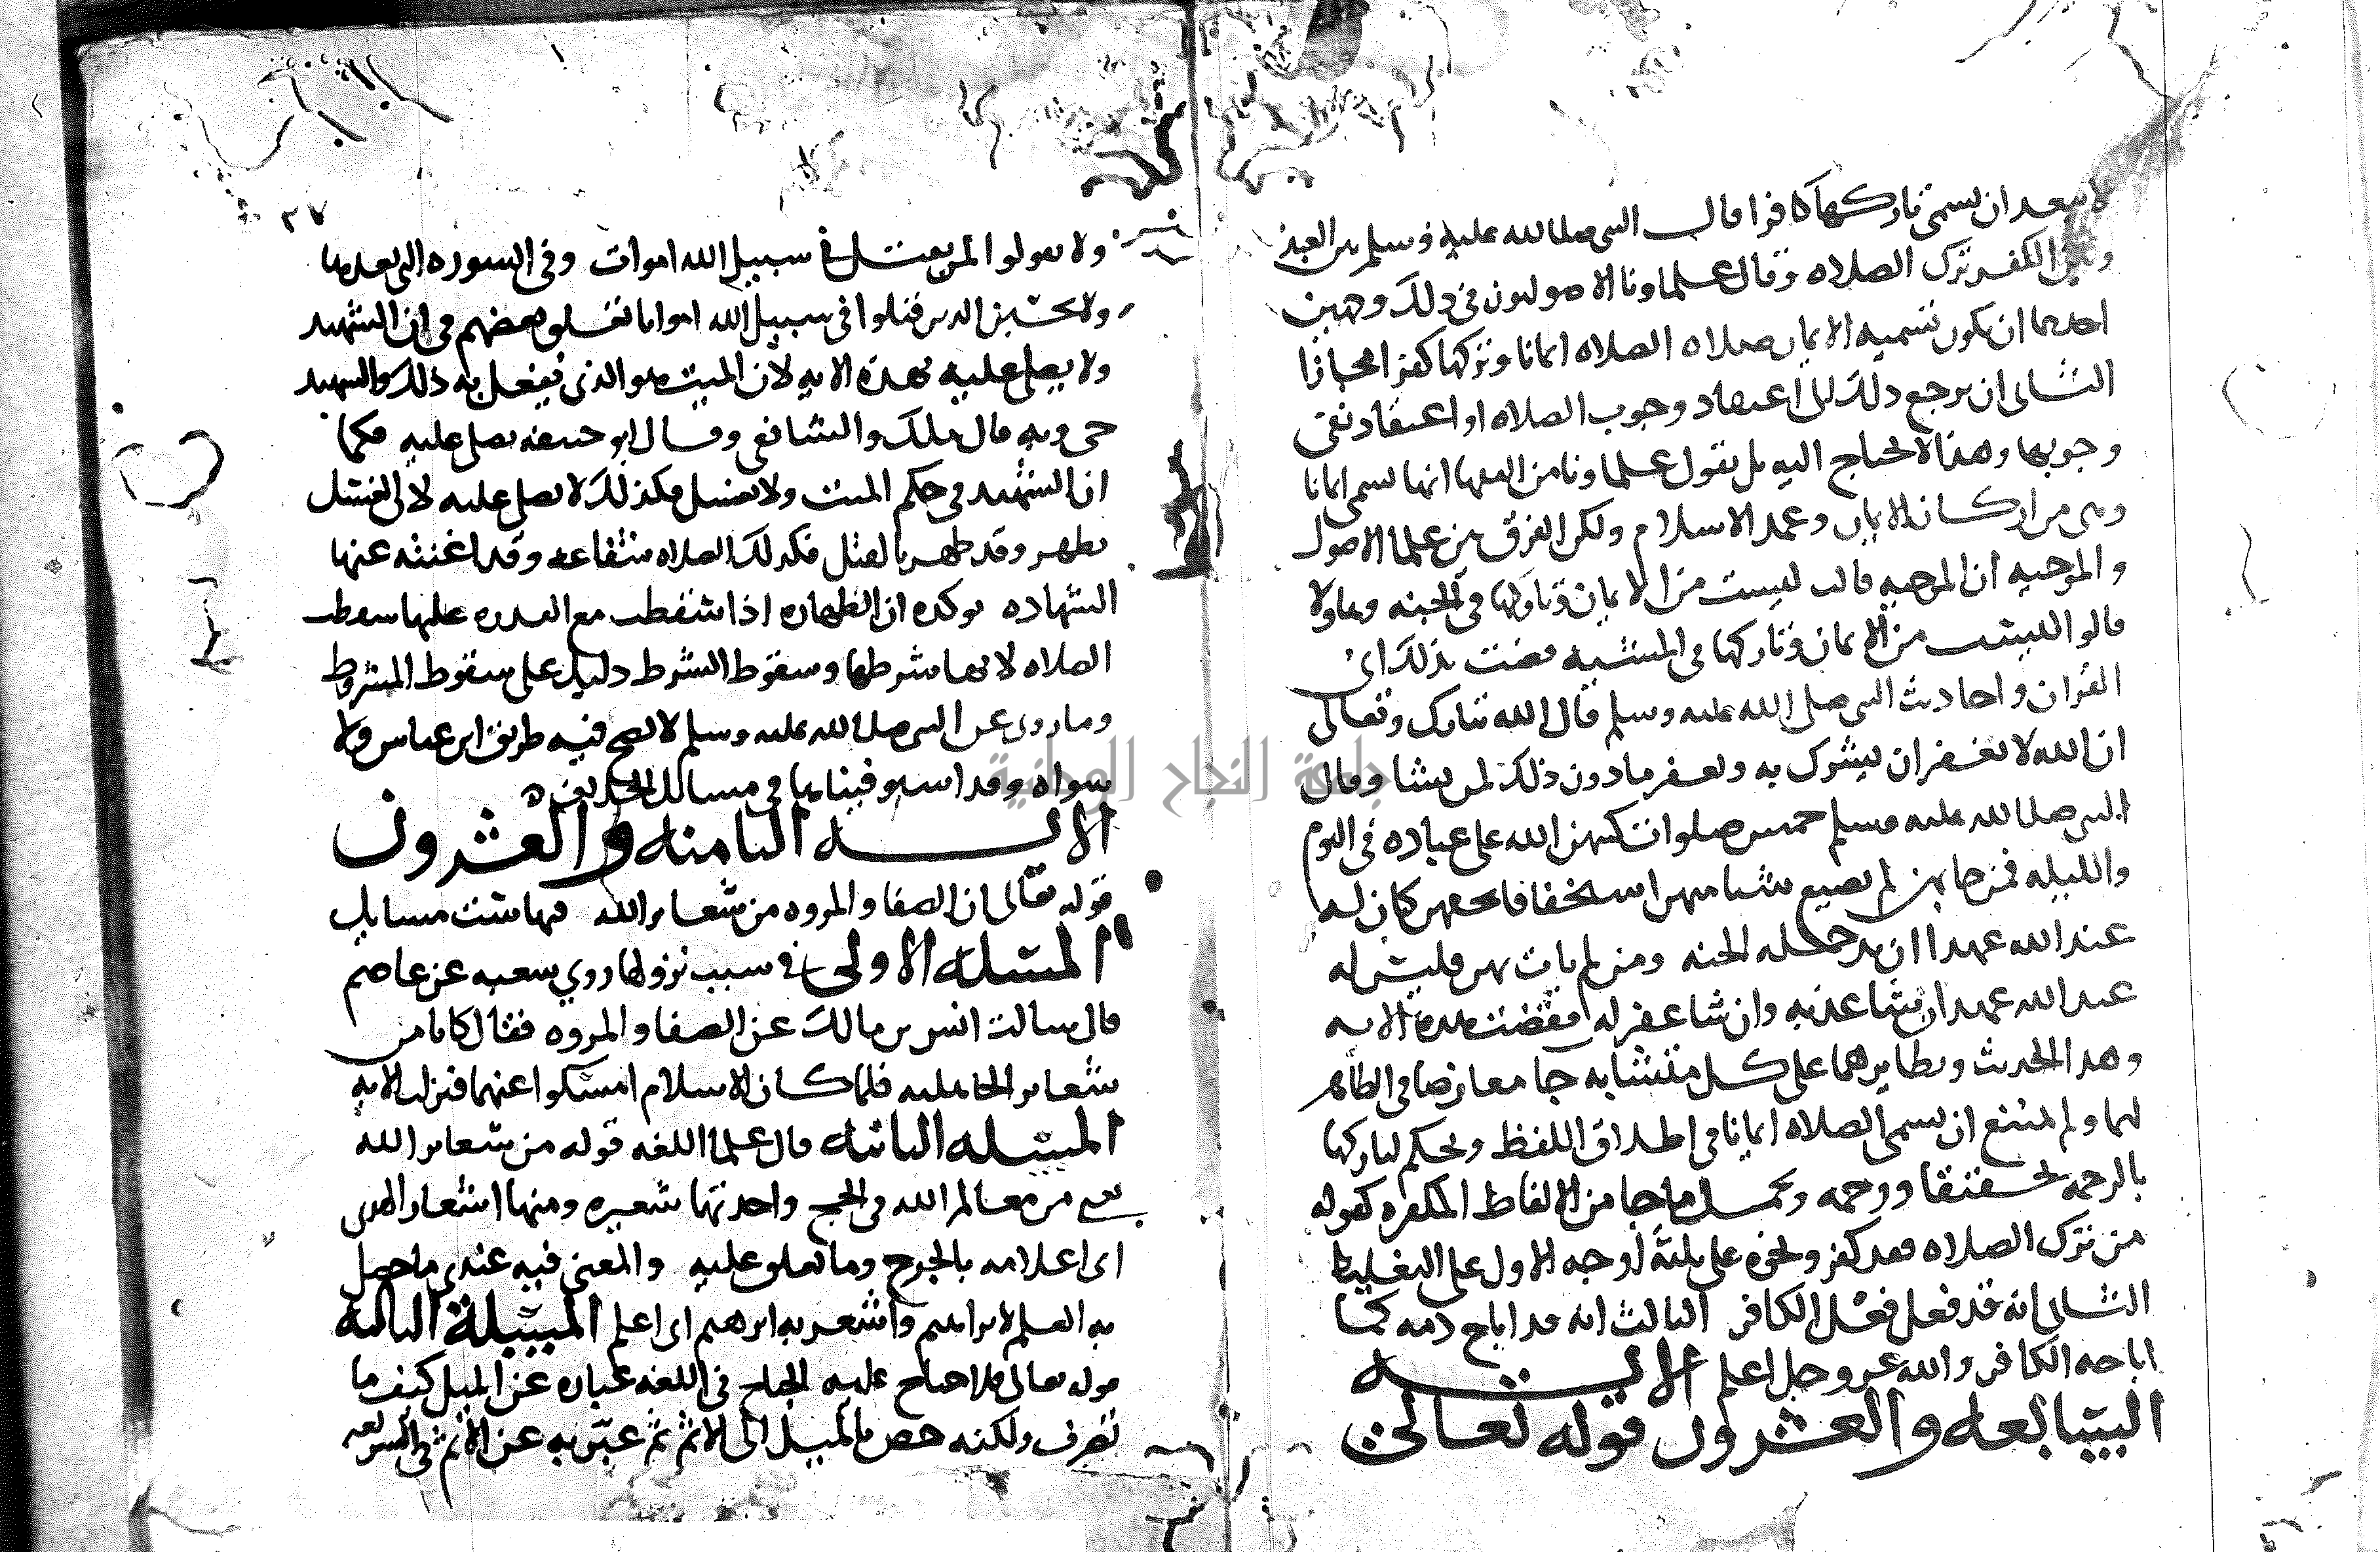 لا سعد ان يسمى تاركها كافرا قال النبي صلى الله عليه وسلم بين العبد
وبين الكفر ترك الصلاه وقال علماونا الاصوليون في ذلك وجهين
احدهما ان يكون تسميه الايمان صلاه الصلاه ايمانا وتركها كفرا مجازا
الثاني ان يرجع ذلك الى اعتقاد وجوب الصلاه او اعتقاد نفي
وجوبها وهذا لا يحتاج اليه بل يقول علماونا من الفقها انها تسمى ايمانا
وهي من اركان الايمان وعمد الاسلام ولكن الفرق بين علما الاصول
والمرجيه ان المرجيه قالت ليست من الايمان وتاركها في الجنه وهاولا
قالوا ليست من الايمان وتاركها في المشيه قضت بذلك اي
القران واحاديث النبي صلى الله عليه وسلم قال الله تبارك وتعالى
ان الله لا يغفر ان يشرك به ويغفر ما دون ذلك لمن يشا وقال
النبي صلى الله عليه وسلم خمس صلوات كتبهن الله على عباده في اليوم
والليله فمن جا بهن لم يضيع شيا منهن استخفافا بحقهن كان له
عند الله عهدا ان يدخله الجنه ومن لم يات بهن فليس له
عند الله عهد ان شا عذبه وان شا غفر له فقضت هذه الايه
وهذا الحديث ونظايرهما على كل متشابه جا معارضا في الظاهر
لهما ولم يمتنع ان تسمى الصلاه ايمانا في اطلاق اللفظ ويحكم لتاركها
بالرحمه ويحمل ما جا من الالفاظ المكفره كقوله
من ترك الصلاه فقد كفر ونحوه على ثلثة اوجه الاول على التغليظ
الثاني انه قد فعل فعل الكافر الثالث انه قد اباح دمه كما
اباحه الكافر والله عز وجل اعلم الايــه
السابعه والعشرون قوله تعالى
٣٧
ولا تقولوا لمن يقتل في سبيل الله اموات وفي السوره التي بعدها
ولا تحسبن الذين قتلوا في سبيل الله امواتا تعلق بعضهم في ان الشهيد
ولا يصلى عليه بهذه الايه لان الميت هو الذي يفعل به ذلك والشهيد
حي وبه قال ملك والشافعي وقال ابو حنيفه يصلى عليه فكما
ان الشهيد في حكم الميت ولا يغسل فكذلك لا يصلى عليه لان الغسل
تطهر وقد طهر بالقتل فكذلك الصلاه شفاعه وقد اغنته عنها
الشهاده يوكده ان الطهاره اذا سقطت مع القدره عليها سقطت
الصلاه لانها شرطها وسقوط الشرط دليل على سقوط المشروط
وما روى عن النبي صلى الله عليه وسلم لا يصح فيه طريق ابن عباس ولا
سواه وقد استوفيناها في مسايل الخلاف
الايــه الثامنه والعشرون
قوله تعالى ان الصفا والمروه من شعاير الله فيها ست مسايل
المسله الاولى في سبب نزولها روى شعبه عن عاصم
قال سالت انس بن مالك عن الصفا والمروه فقال كانا من
شعاير الجاهليه فلما كان الاسلام امسكوا عنهما فنزلت الايه
المسله الثانيه قال علما اللغه قوله من شعاير الله
يعني من معالم الله في الحج واحدتها شعيره ومنها اشعار الهدي
اى اعلامه بالجرح وما تعلق عليه والمعنى فيه عندي ما حصل
به العلم لابراهيم واشعر به ابرهيم اى اعلم المسيلة الثالثة
قوله تعالى فلا جناح عليه الجناح في اللغه عباره عن الميل كيف ما
تصرف ولكنه خص بالميل الى الاثم ثم عبر به عن الاثم في الشريعه
جامعة النجاح الوطنية